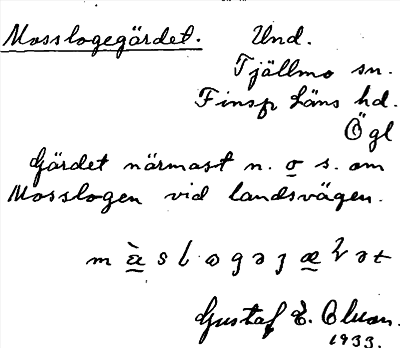 Mosslogegärdet. Und.
Tjällmo sn.
Finsp läns hd.
Ögl
Gärdet närmast n. o s. om
Mosslogen vid landsvägen.
Gustaf E.
1933.